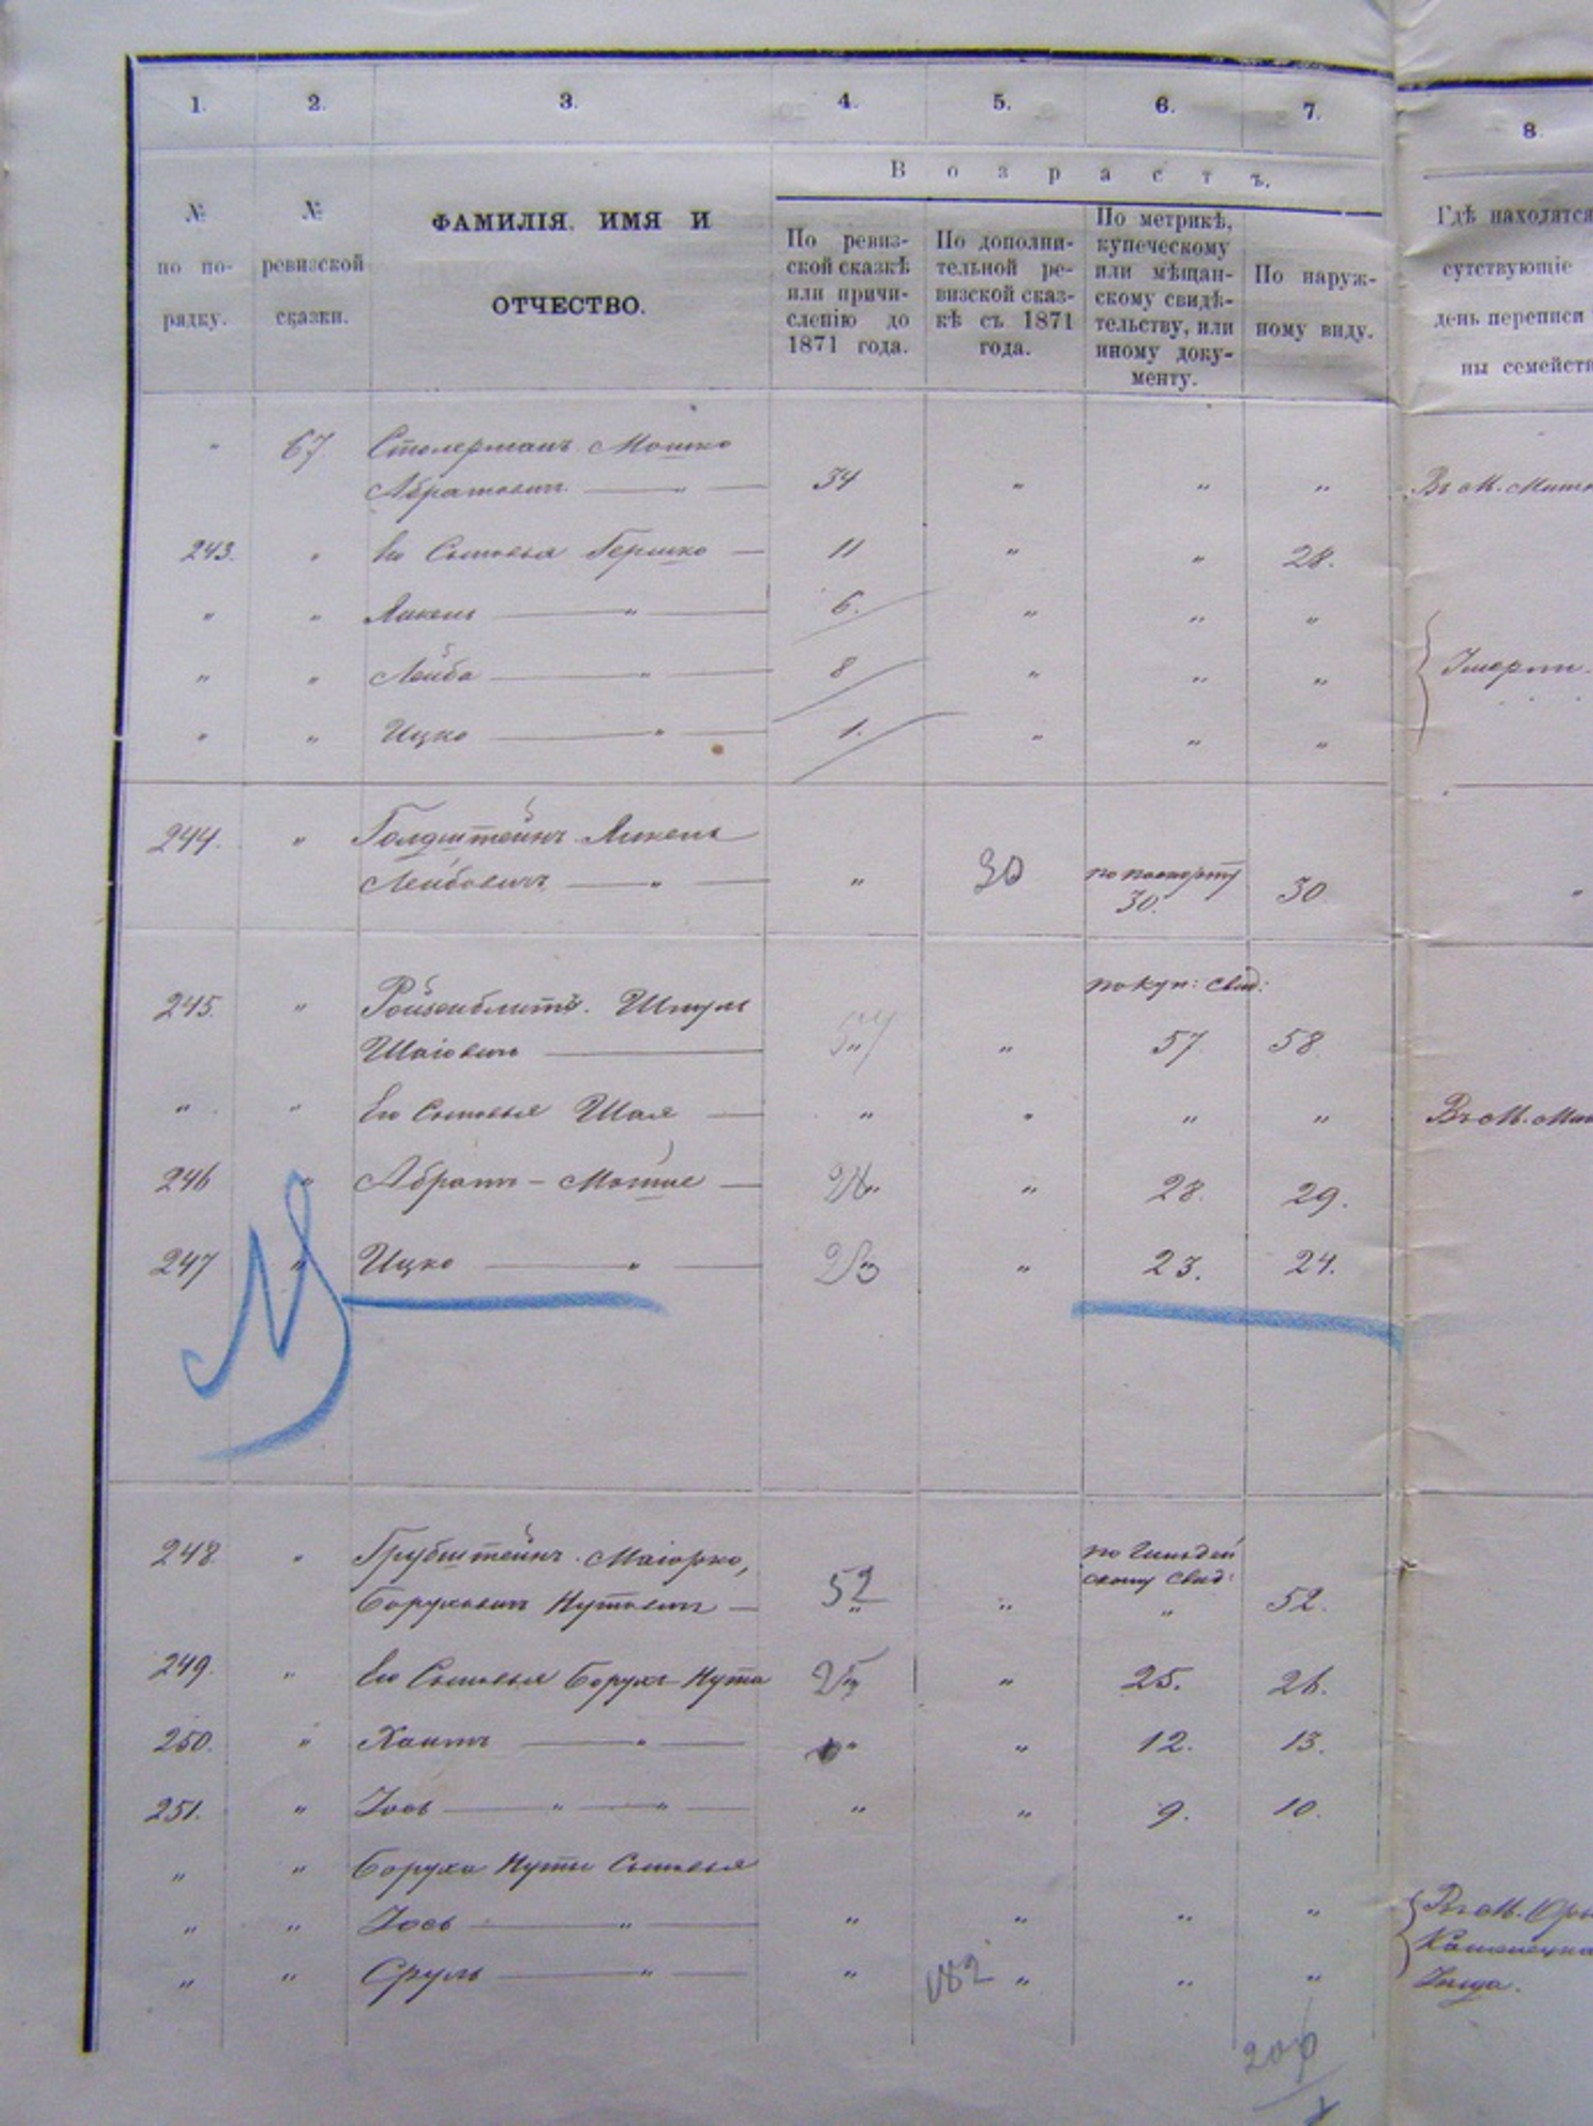 1. 2. 3. 4. 5. 6. 7. 8
В о з р а с т ъ.
№ по по- рядку.
№ ревизской сказки.
ФАМИЛІЯ, ИМЯ И
ОТЧЕСТВО.
По ревиз-
ской сказкѣ
или причи-
сленію до
1871 года.
По дополни-
тельной ре-
визской сказ-
кѣ съ 1871
года.
По метрикѣ,
купеческому
или мѣщан-
скому свидѣ-
тельству, или
иному доку-
менту.
По наруж-
ному виду.
Гдѣ находятся
сутствующіе
день переписи
ны семейств
" 67. Столерманъ Мошко
Абрамовичъ — " — 34 " " " Въ М.
243. " Его Сыновья Гершко — 11 " " 28.
" " Янкель — " — 6. " " "
" " Лейба — " — 8 " " " Умерли.
" " Ицко — " — 1. " " "
244. " Голдштейнъ Янкель
Лейбовичъ — " — " 30 по паспорту 30. 30
245. " Ройзенблитъ. Шмуль по куп: свид:
Шаіовичъ — 57 " " 57 58
" " Его Сыновья Шая — " " " " Въ М.
246 " Абрамъ - Мотие — 28 " " 28. 29.
247 " Ицко — " — 23 " " 23. 24.
248 " Грубштейнъ Маіорко, по гильдей
скому свид:
Боруховичъ Нутовичъ — 52 " " " 52.
249. " Его Сыновья Борухъ-Нута 25 " " 25. 26.
250. " Хаимъ — " — " " 12. 13.
251. " Іось — " — " — " " 9. 10.
" " Боруха Нуты Сыновья
" " Іось — " — " " " " Въ М.
" " Сруль — " — " 182 " " "
206